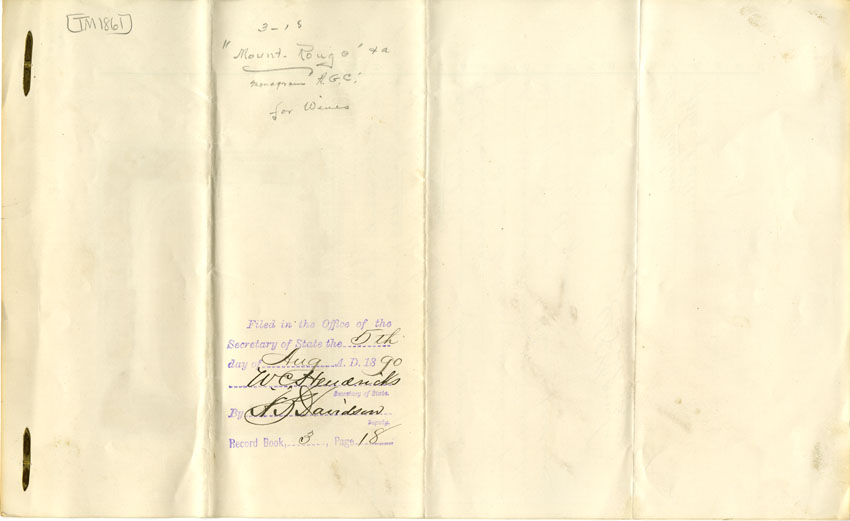 [TM1861]
3-18
"Mount Rouge" & a
monogram A.G.C.
for Wines
Filed in the Office of the
Secretary of State the 5th
day of Aug A. D. 1890
W C Hendricks
Secretary of State.
By Davidson
Deputy.
Record Book, 3, Page 18